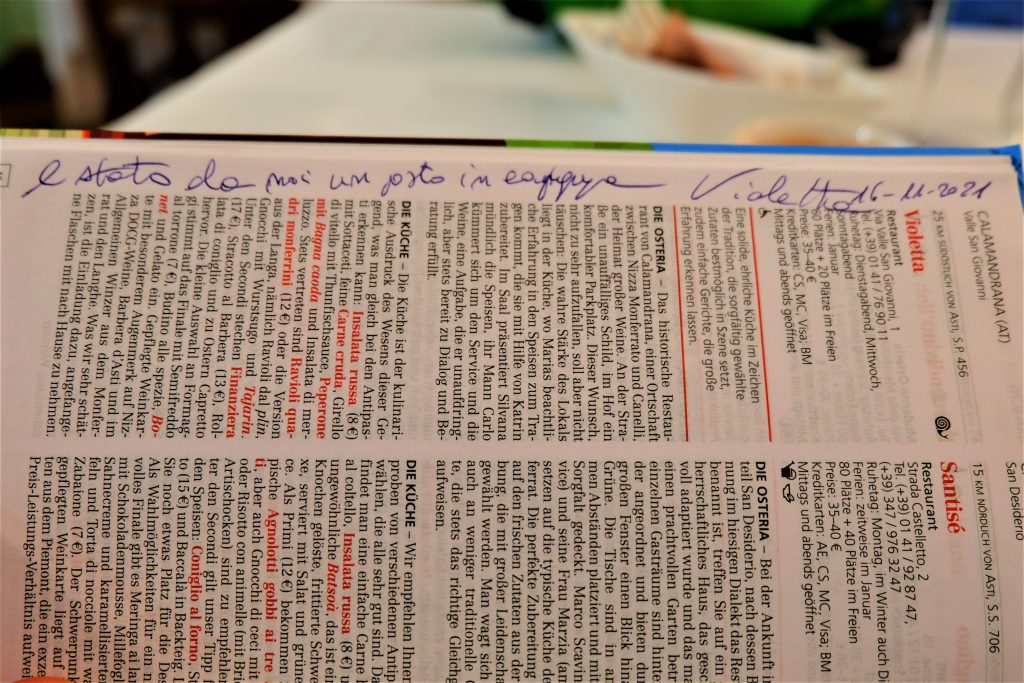 e stato da noi un posto in
Violetta 16-11-2021
CALAMANDRANA (AT)
Valle San Giovanni
25 KM SÜDÖSTLICH VON ASTI, S.P. 456
Violetta
Restaurant
Via Valle San Giovanni, 1
Tel. (+39) 01 41 / 76 90 11
Ruhetag: Dienstagabend, Mittwoch,
Sonntagabend
Ferien: Januar
50 Plätze + 20 Plätze im Freien
Preise: 35–40 €
Kreditkarten: AE, CS, MC, Visa; BM
Mittags und abends geöffnet
Eine solide, ehrliche Küche im Zeichen
der Tradition, die sorgfältig gewählte
Zutaten bestmöglich in Szene setzt,
zudem einfache Gerichte, die große
Erfahrung erkennen lassen.
DIE OSTERIA – Das historische Restau-
rant von Calamandrana, einer Ortschaft
zwischen Nizza Monferrato und Canelli,
der Heimat großer Weine. An der Stra-
ße ein unauffälliges Schild, im Hof ein
komfortabler Parkplatz. Dieser Wunsch,
nicht zu sehr aufzufallen, soll aber nicht
täuschen: Die wahre Stärke des Lokals
liegt in der Küche, wo Marias beachtli-
che Erfahrung in den Speisen zum Tra-
gen kommt, die sie mit Hilfe von Katrin
zubereitet. Im Saal präsentiert Silvana
mündlich die Speisen, ihr Mann Carlo
kümmert sich um den Service und die
Weine, eine Aufgabe, die er unaufdring-
lich, aber stets bereit zu Dialog und Be-
ratung erfüllt.
DIE KÜCHE – Die Küche ist der kulinari-
sche Ausdruck des Wesens dieser Ge-
gend, was man gleich bei den Antipas-
ti erkennen kann: Insalata russa (8 €)
mit Sottaceti, feine Carne cruda, Girello
di vitello mit Thunfischsauce, Peperone
mit Bagna caoda und Insalata di mer-
luzzo. Stets vertreten sind Ravioli qua-
dri monferrini (12 €) oder die Version
aus der Langa, nämlich Ravioli dal plin,
Gnocchi mit Wurstsugo und Tajarin.
Unter den Secondi stechen Finanziera
(17 €), Stracotto al Barbera (13 €), Rol-
lata di coniglio und zu Ostern Capretto
hervor. Die kleine Auswahl an Formag-
gi stimmt auf das Finale mit Semifreddo
al torrone (7 €), Budino alle spezie, Bo-
net und Gelato ein. Gepflegte Weinkar-
te mit besonderem Augenmerk auf Niz-
za DOCG-Weine, Barbera d'Asti und im
Allgemeinen Winzer aus dem Monfer-
rat und den Langhe. Was wir sehr schät-
zen, ist die Einladung dazu, angefange-
ne Flaschen mit nach Hause zu nehmen.
San Desiderio
15 KM NÖRDLICH VON ASTI, S.S. 706
Santisé
Restaurant
Strada Castelletto, 2
Tel. (+39) 01 41 / 92 87 47,
(+39) 347 / 976 32 47
Ruhetag: Montag, im Winter auch Di
Ferien: zeitweise im Januar
80 Plätze + 40 Plätze im Freien
Preise: 35–40 €
Kreditkarten: AE, CS, MC, Visa; BM
Mittags und abends geöffnet
DIE OSTERIA – Bei der Ankunft i
teil San Desiderio, nach dessen B
nung im hiesigen Dialekt das Res
benannt ist, treffen Sie auf ein
herrschaftliches Haus, das gesc
voll adaptiert wurde und das me
einen prachtvollen Garten betr
einzelnen Gasträume sind hinte
der angeordnet und bieten dur
großen Fenster einen Blick hina
Grüne. Die Tische sind in an
men Abständen platziert und mit
Sorgfalt gedeckt. Marco Scavin
vice) und seine Frau Marzia (am
setzen auf die typische Küche de
ferrat. Die perfekte Zubereitung
auf den frischen Zutaten aus der
bung, die mit großer Leidenschaf
gewählt werden. Man wagt sich
auch an weniger traditionelle G
te, die stets das richtige Gleichg
aufweisen.
DIE KÜCHE – Wir empfehlen Ihnen
proben von verschiedenen Antip
wählen, die alle sehr gut sind. Da
findet man eine einfache Carne
al coltello, Insalata russa (8 €) u
ungewöhnliche Batsoà, das ist ein
Knochen gelöste, frittierte Schwei
xe, serviert mit Salat und grüne
ce. Als Primi (12 €) bekommen
pische Agnolotti gobbi ai tre
ti, aber auch Gnocchi di ceci mit
oder Risotto con animelle (mit Bri
Artischocken) sind zu empfehle
ter den Secondi gilt unser Tipp f
den Speisen: Coniglio al forno, St
to (15 €) und Baccalà in Backteig. L
Sie noch etwas Platz für die Des
Als Wahlmöglichkeiten für ein n
volles Finale gibt es Meringa ai lam
mit Schokoladenmousse, Millefogl
Sahnecreme und karamellisierten
feln und Torta di nocciole mit wa
Zabaione (7 €). Der Schwerpunk
gepflegten Weinkarte liegt auf
ten aus dem Piemont, die ein exze
Preis-Leistungs-Verhältnis aufweis